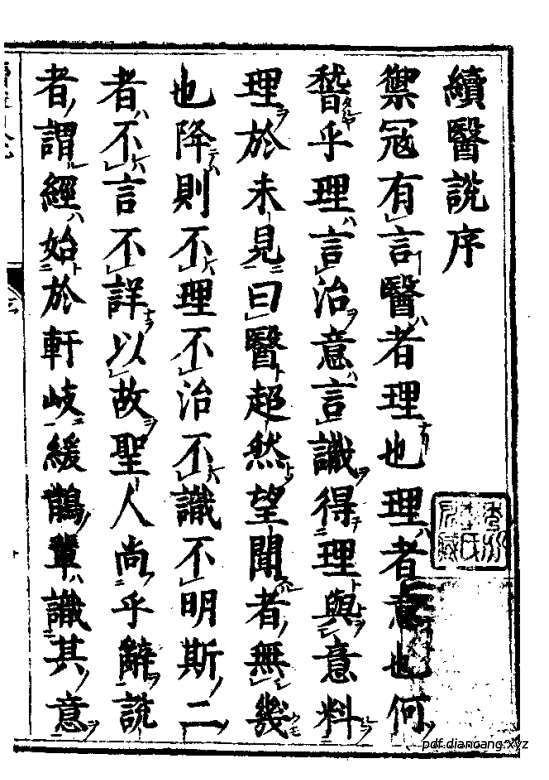 續醫說序
禦冦有言醫者理也理者意也何
嵆乎理言治意言識得理與意料
理於未見曰醫超然望聞者無幾
也降則不理不治不識不明斯二
者不言不詳以故聖人尚乎辭說
者謂經始於軒岐緩鵲輩識其意
pdf.diancang.xyz